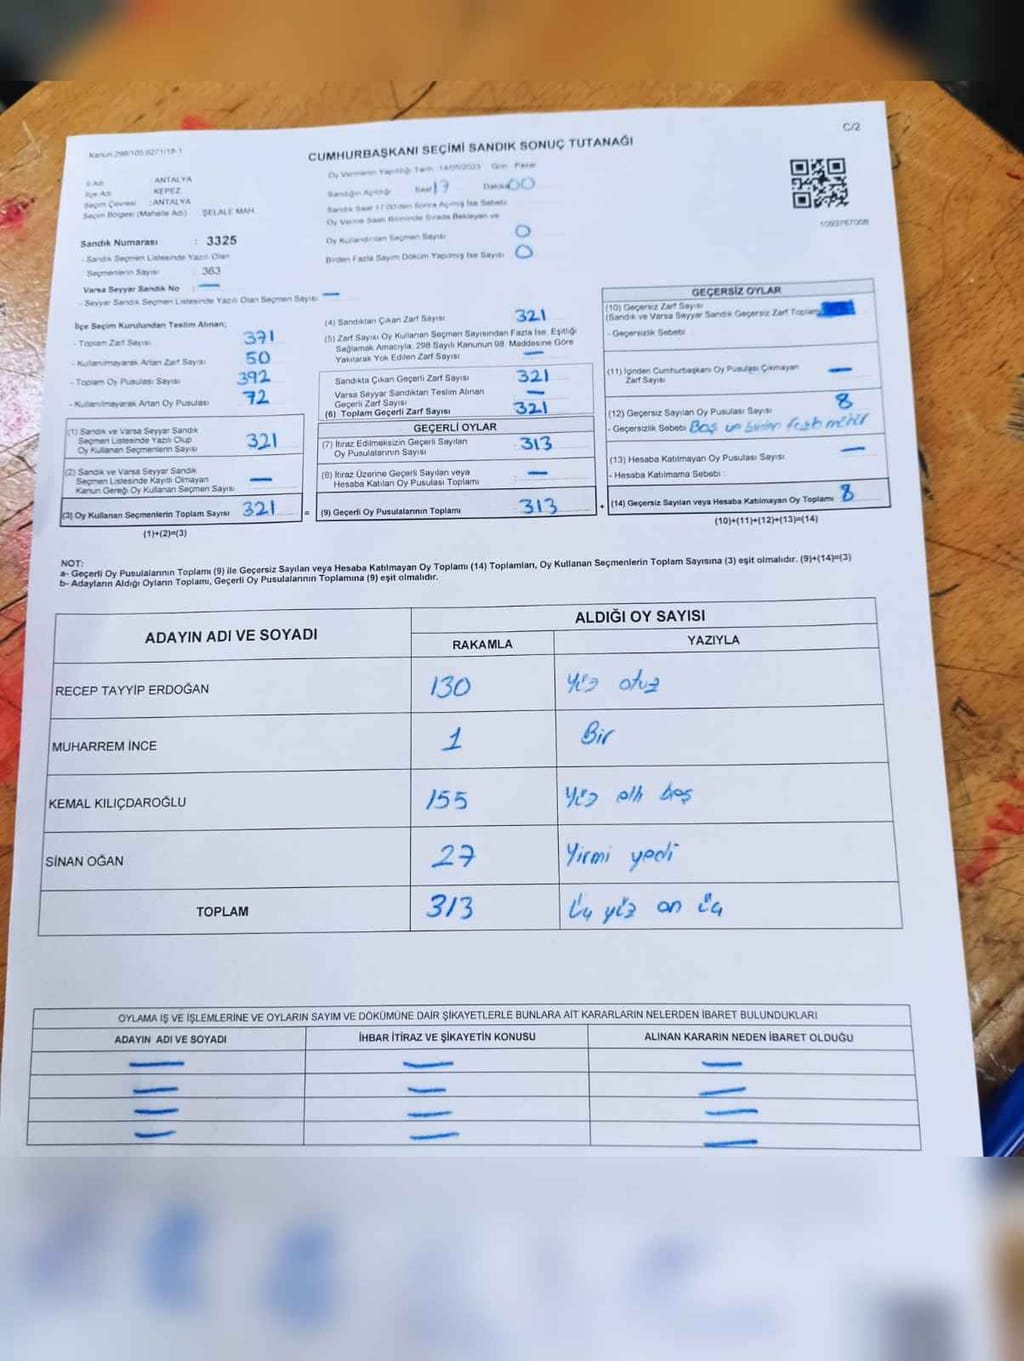 C/2
Kanun:298/105,6271/18-1
CUMHURBAŞKANI SEÇİMİ SANDIK SONUÇ TUTANAĞI
İl Adı : ANTALYA
İlçe Adı : KEPEZ
Seçim Çevresi : ANTALYA
Seçim Bölgesi (Mahalle Adı) : ŞELALE MAH.
Oy Vermenin Yapıldığı Tarih : 14/05/2023 Gün : Pazar
Sandığın Açıldığı Saat 17 Dakika 00
Sandık Saat 17.00'den Sonra Açılmış İse Sebebi
Oy Verme Saati Bitiminde Sırada Bekleyen ve
Oy Kullandırılan Seçmen Sayısı 0
Birden Fazla Sayım Döküm Yapılmış İse Sayısı 0
1093767008
Sandık Numarası : 3325
- Sandık Seçmen Listesinde Yazılı Olan
Seçmenlerin Sayısı : 363
Varsa Seyyar Sandık No : —
- Seyyar Sandık Seçmen Listesinde Yazılı Olan Seçmen Sayısı —
İlçe Seçim Kurulundan Teslim Alınan;
- Toplam Zarf Sayısı 371
- Kullanılmayarak Artan Zarf Sayısı 50
- Toplam Oy Pusulası Sayısı 392
- Kullanılmayarak Artan Oy Pusulası 72
(1) Sandık ve Varsa Seyyar Sandık
Seçmen Listesinde Yazılı Olup
Oy Kullanan Seçmenlerin Sayısı 321
(2) Sandık ve Varsa Seyyar Sandık
Seçmen Listesinde Kayıtlı Olmayan
Kanun Gereği Oy Kullanan Seçmen Sayısı —
(3) Oy Kullanan Seçmenlerin Toplam Sayısı 321
(1)+(2)=(3)
(4) Sandıktan Çıkan Zarf Sayısı 321
(5) Zarf Sayısı Oy Kullanan Seçmen Sayısından Fazla İse, Eşitliği
Sağlamak Amacıyla, 298 Sayılı Kanunun 98. Maddesine Göre
Yakılarak Yok Edilen Zarf Sayısı —
Sandıkta Çıkan Geçerli Zarf Sayısı 321
Varsa Seyyar Sandıktan Teslim Alınan
Geçerli Zarf Sayısı —
(6) Toplam Geçerli Zarf Sayısı 321
GEÇERLİ OYLAR
(7) İtiraz Edilmeksizin Geçerli Sayılan
Oy Pusulasının Sayısı 313
(8) İtiraz Üzerine Geçerli Sayılan veya
Hesaba Katılan Oy Pusulası Toplamı : —
= (9) Geçerli Oy Pusulalarının Toplamı 313 +
GEÇERSİZ OYLAR
(10) Geçersiz Zarf Sayısı
(Sandık ve Varsa Seyyar Sandık Geçersiz Zarf Toplamı)
- Geçersizlik Sebebi :
(11) İçinden Cumhurbaşkanı Oy Pusulası Çıkmayan
Zarf Sayısı —
(12) Geçersiz Sayılan Oy Pusulası Sayısı 8
- Geçersizlik Sebebi : Boş ve birden fazla mühür
(13) Hesaba Katılmayan Oy Pusulası Sayısı —
- Hesaba Katılmama Sebebi :
(14) Geçersiz Sayılan veya Hesaba Katılmayan Oy Toplamı 8
(10)+(11)+(12)+(13)=(14)
NOT:
a- Geçerli Oy Pusulalarının Toplamı (9) ile Geçersiz Sayılan veya Hesaba Katılmayan Oy Toplamı (14) Toplamları, Oy Kullanan Seçmenlerin Toplam Sayısına (3) eşit olmalıdır. (9)+(14)=(3)
b- Adayların Aldığı Oyların Toplamı, Geçerli Oy Pusulalarının Toplamına (9) eşit olmalıdır.
ADAYIN ADI VE SOYADI ALDIĞI OY SAYISI
RAKAMLA YAZIYLA
RECEP TAYYİP ERDOĞAN 130 Yüz otuz
MUHARREM İNCE 1 Bir
KEMAL KILIÇDAROĞLU 155 Yüz elli beş
SİNAN OĞAN 27 Yirmi yedi
TOPLAM 313 Üç yüz on üç
OYLAMA İŞ VE İŞLEMLERİNE VE OYLARIN SAYIM VE DÖKÜMÜNE DAİR ŞİKAYETLERLE BUNLARA AİT KARARLARIN NELERDEN İBARET BULUNDUKLARI
ADAYIN ADI VE SOYADI İHBAR İTİRAZ VE ŞİKAYETİN KONUSU ALINAN KARARIN NEDEN İBARET OLDUĞU
— — —
— — —
— — —
— — —